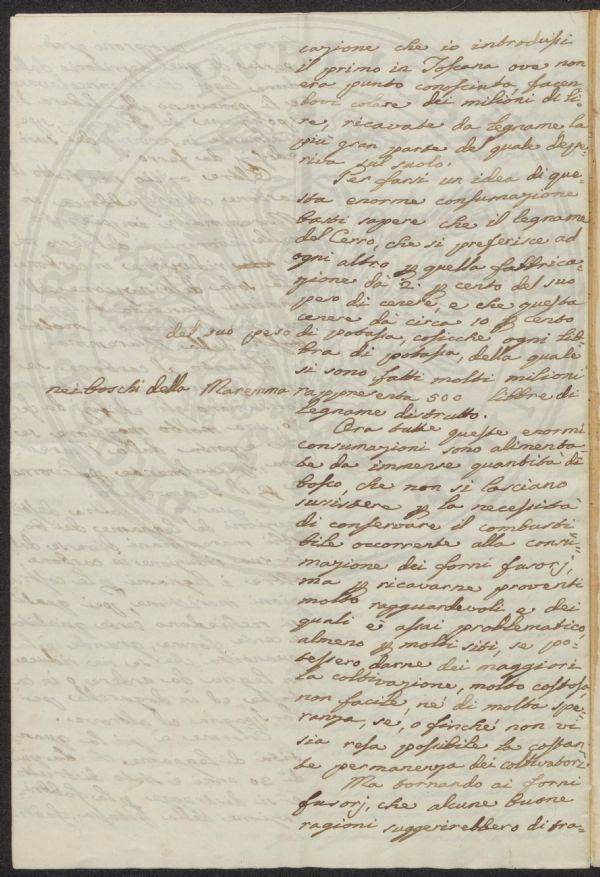 cazione che io introdussi
il primo in Toscana ove non
era punto conosciuta, facen
dovi colare dei milioni di li=
re, ricavate da legname la
più gran parte del quale depe=
riva sul suolo.
Per farsi un idea di que=
sta enorme consumazione
basti sapere che il legname
del Cerro, che si preferisce ad
ogni altro p quella fabbrica=
zione dà 2. p cento del suo
peso di cenere, e che questa
cenere dà circa 10 p cento
del suo peso di potassa, cosicchè ogni lib=
bra di potassa, della quale
si sono fatti molti milioni
nei boschi della Maremma rappresenta 500 libbre di
legname distrutto.
Ora tutte queste enormi
consumazioni sono alimenta=
te da immense quantità di
bosco, che non si lasciano
sussistere p la necessità
di conservare il combusti
bile occorrente alla consu=
mazione dei forni fusorj,
ma p ricavarne proventi
molto ragguardevoli e dei
quali è assai problematico,
almeno p molti siti, se po=
tessero darne dei maggiori
la coltivazione, molto costosa,
non facile, nè di molta spe=
ranza, se, o finchè non vi
sia resa possibile la costan=
te permanenza dei coltivatori.
Ma tornando ai forni
fusorj, che alcune buone
ragioni suggerirebbero di tra=